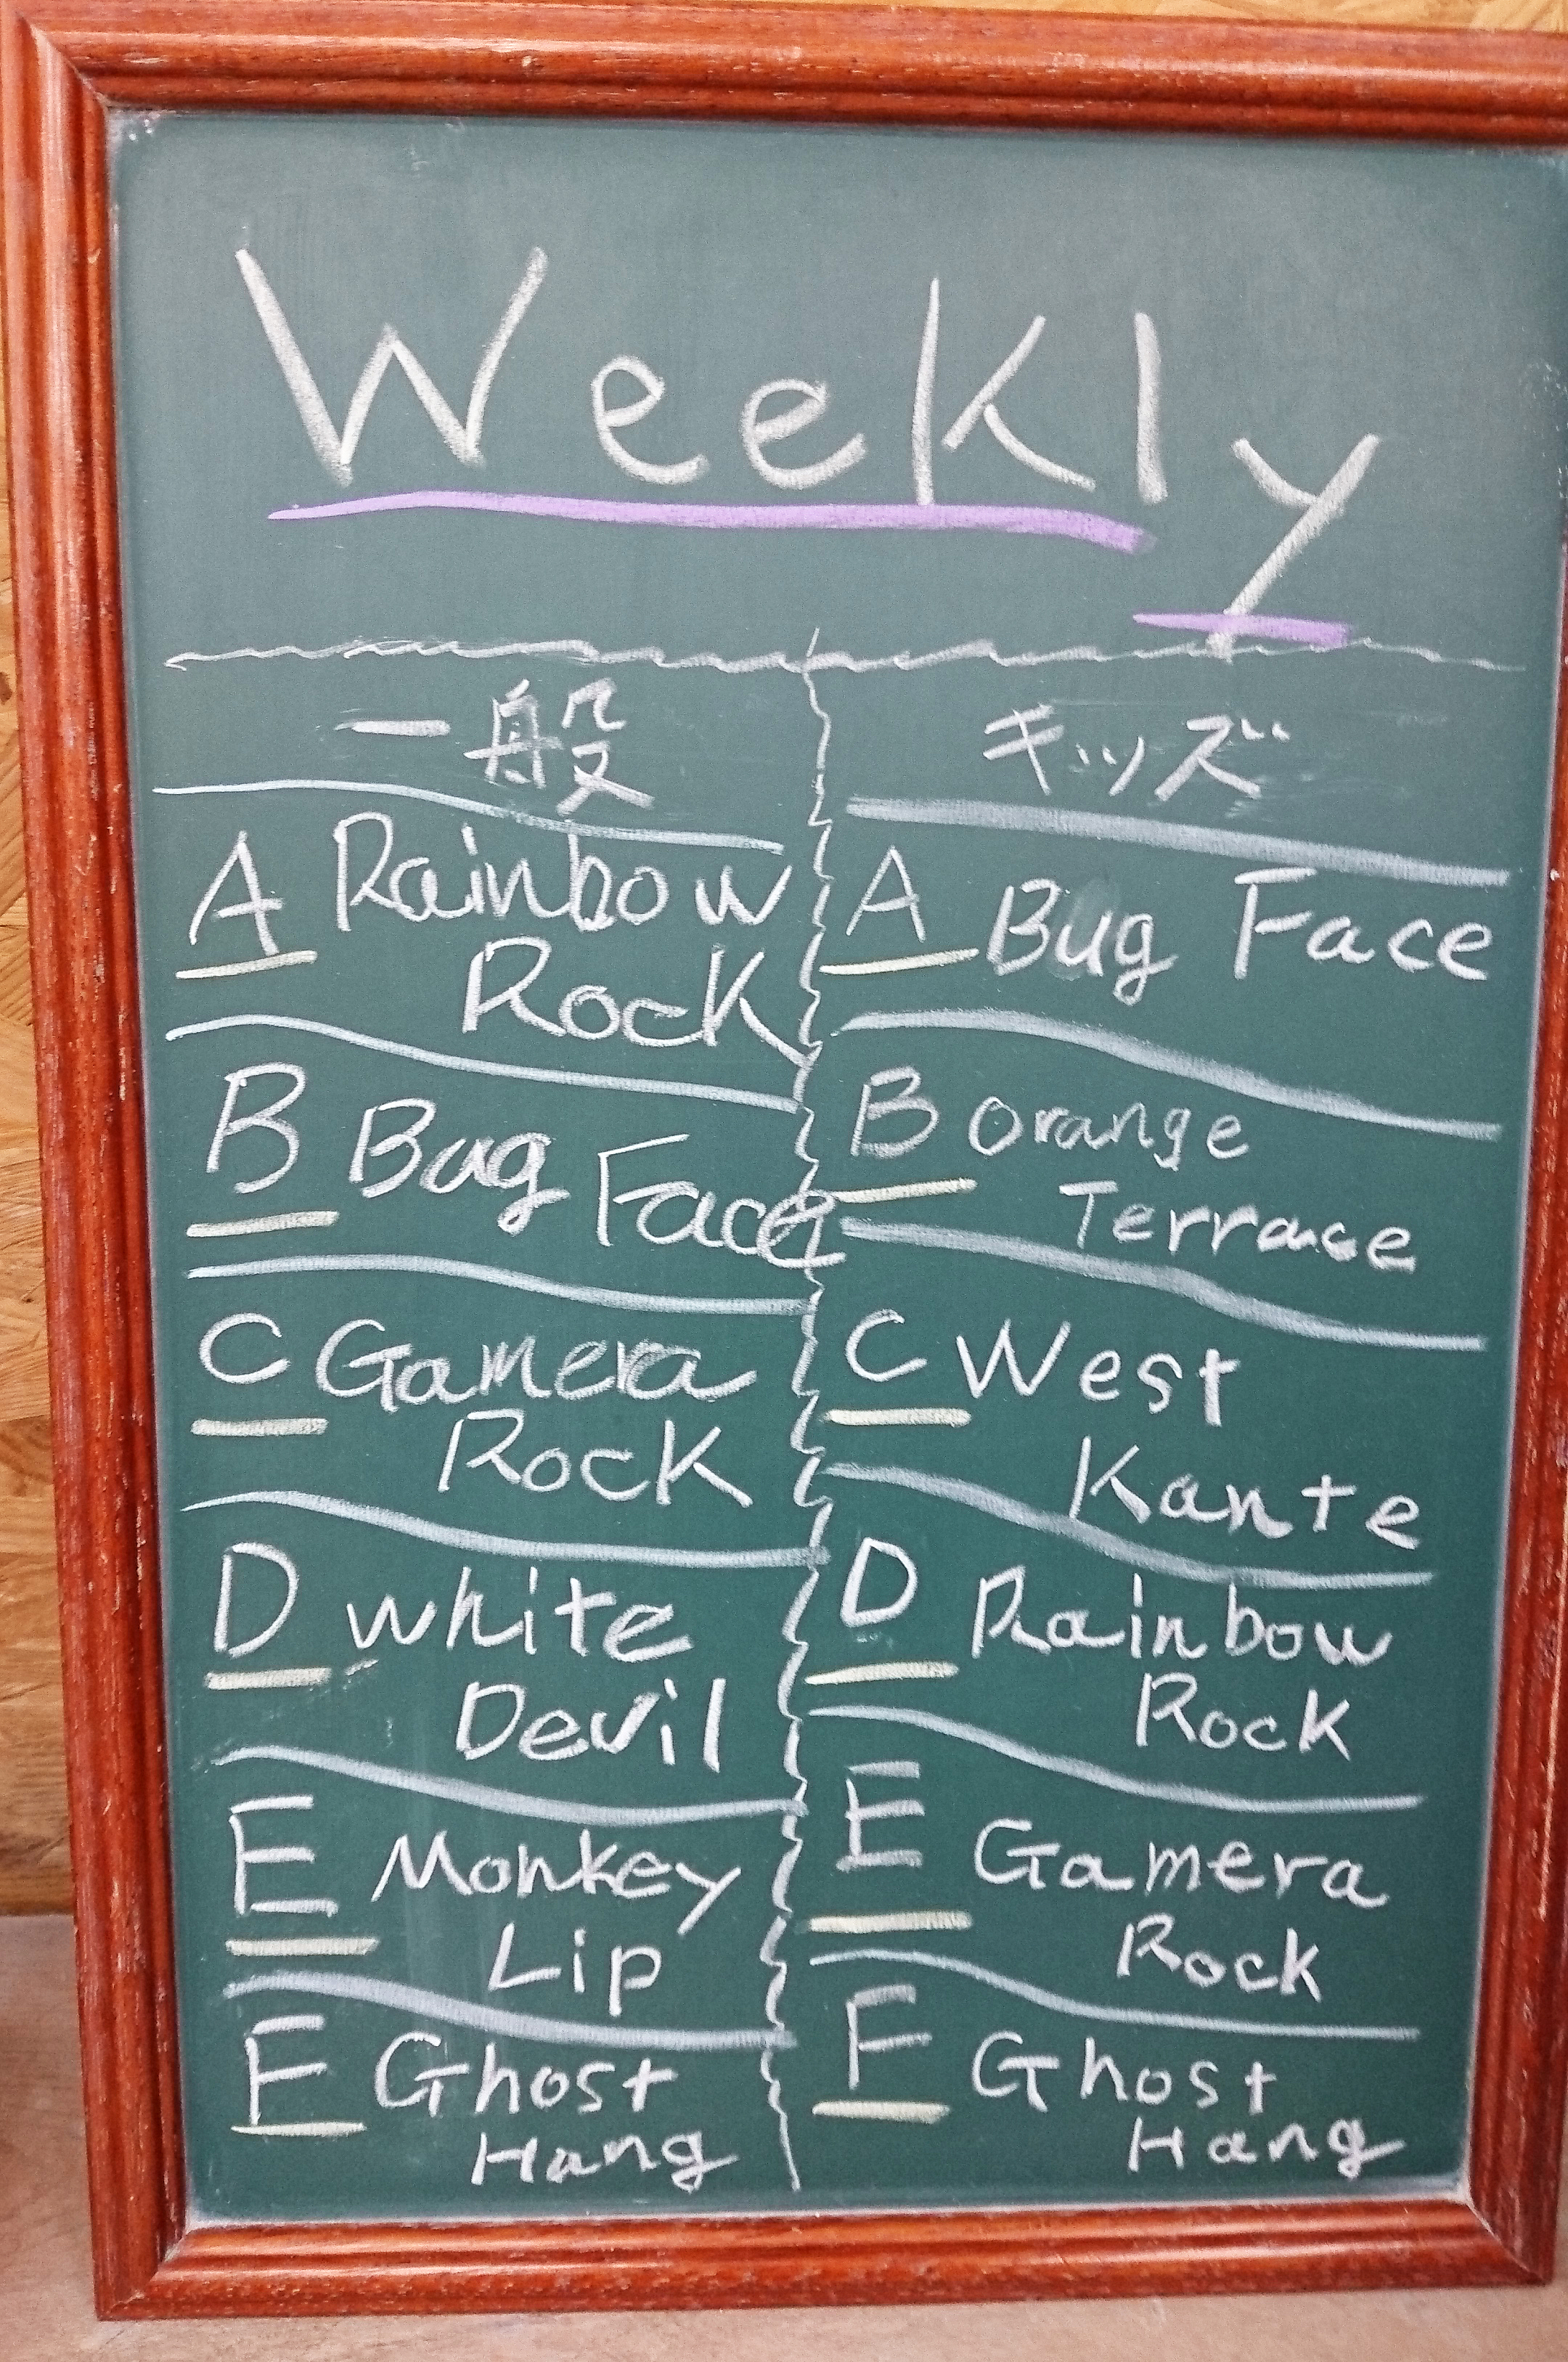 Weekly
一般
A Rainbow
Rock
B Bug Face
C Gamera
Rock
D white
Devil
E Monkey
Lip
F Ghost
Hang
キッズ
A Bug Face
B Orange
Terrace
C West
Kante
D Rainbow
Rock
E Gamera
Rock
F Ghost
Hang